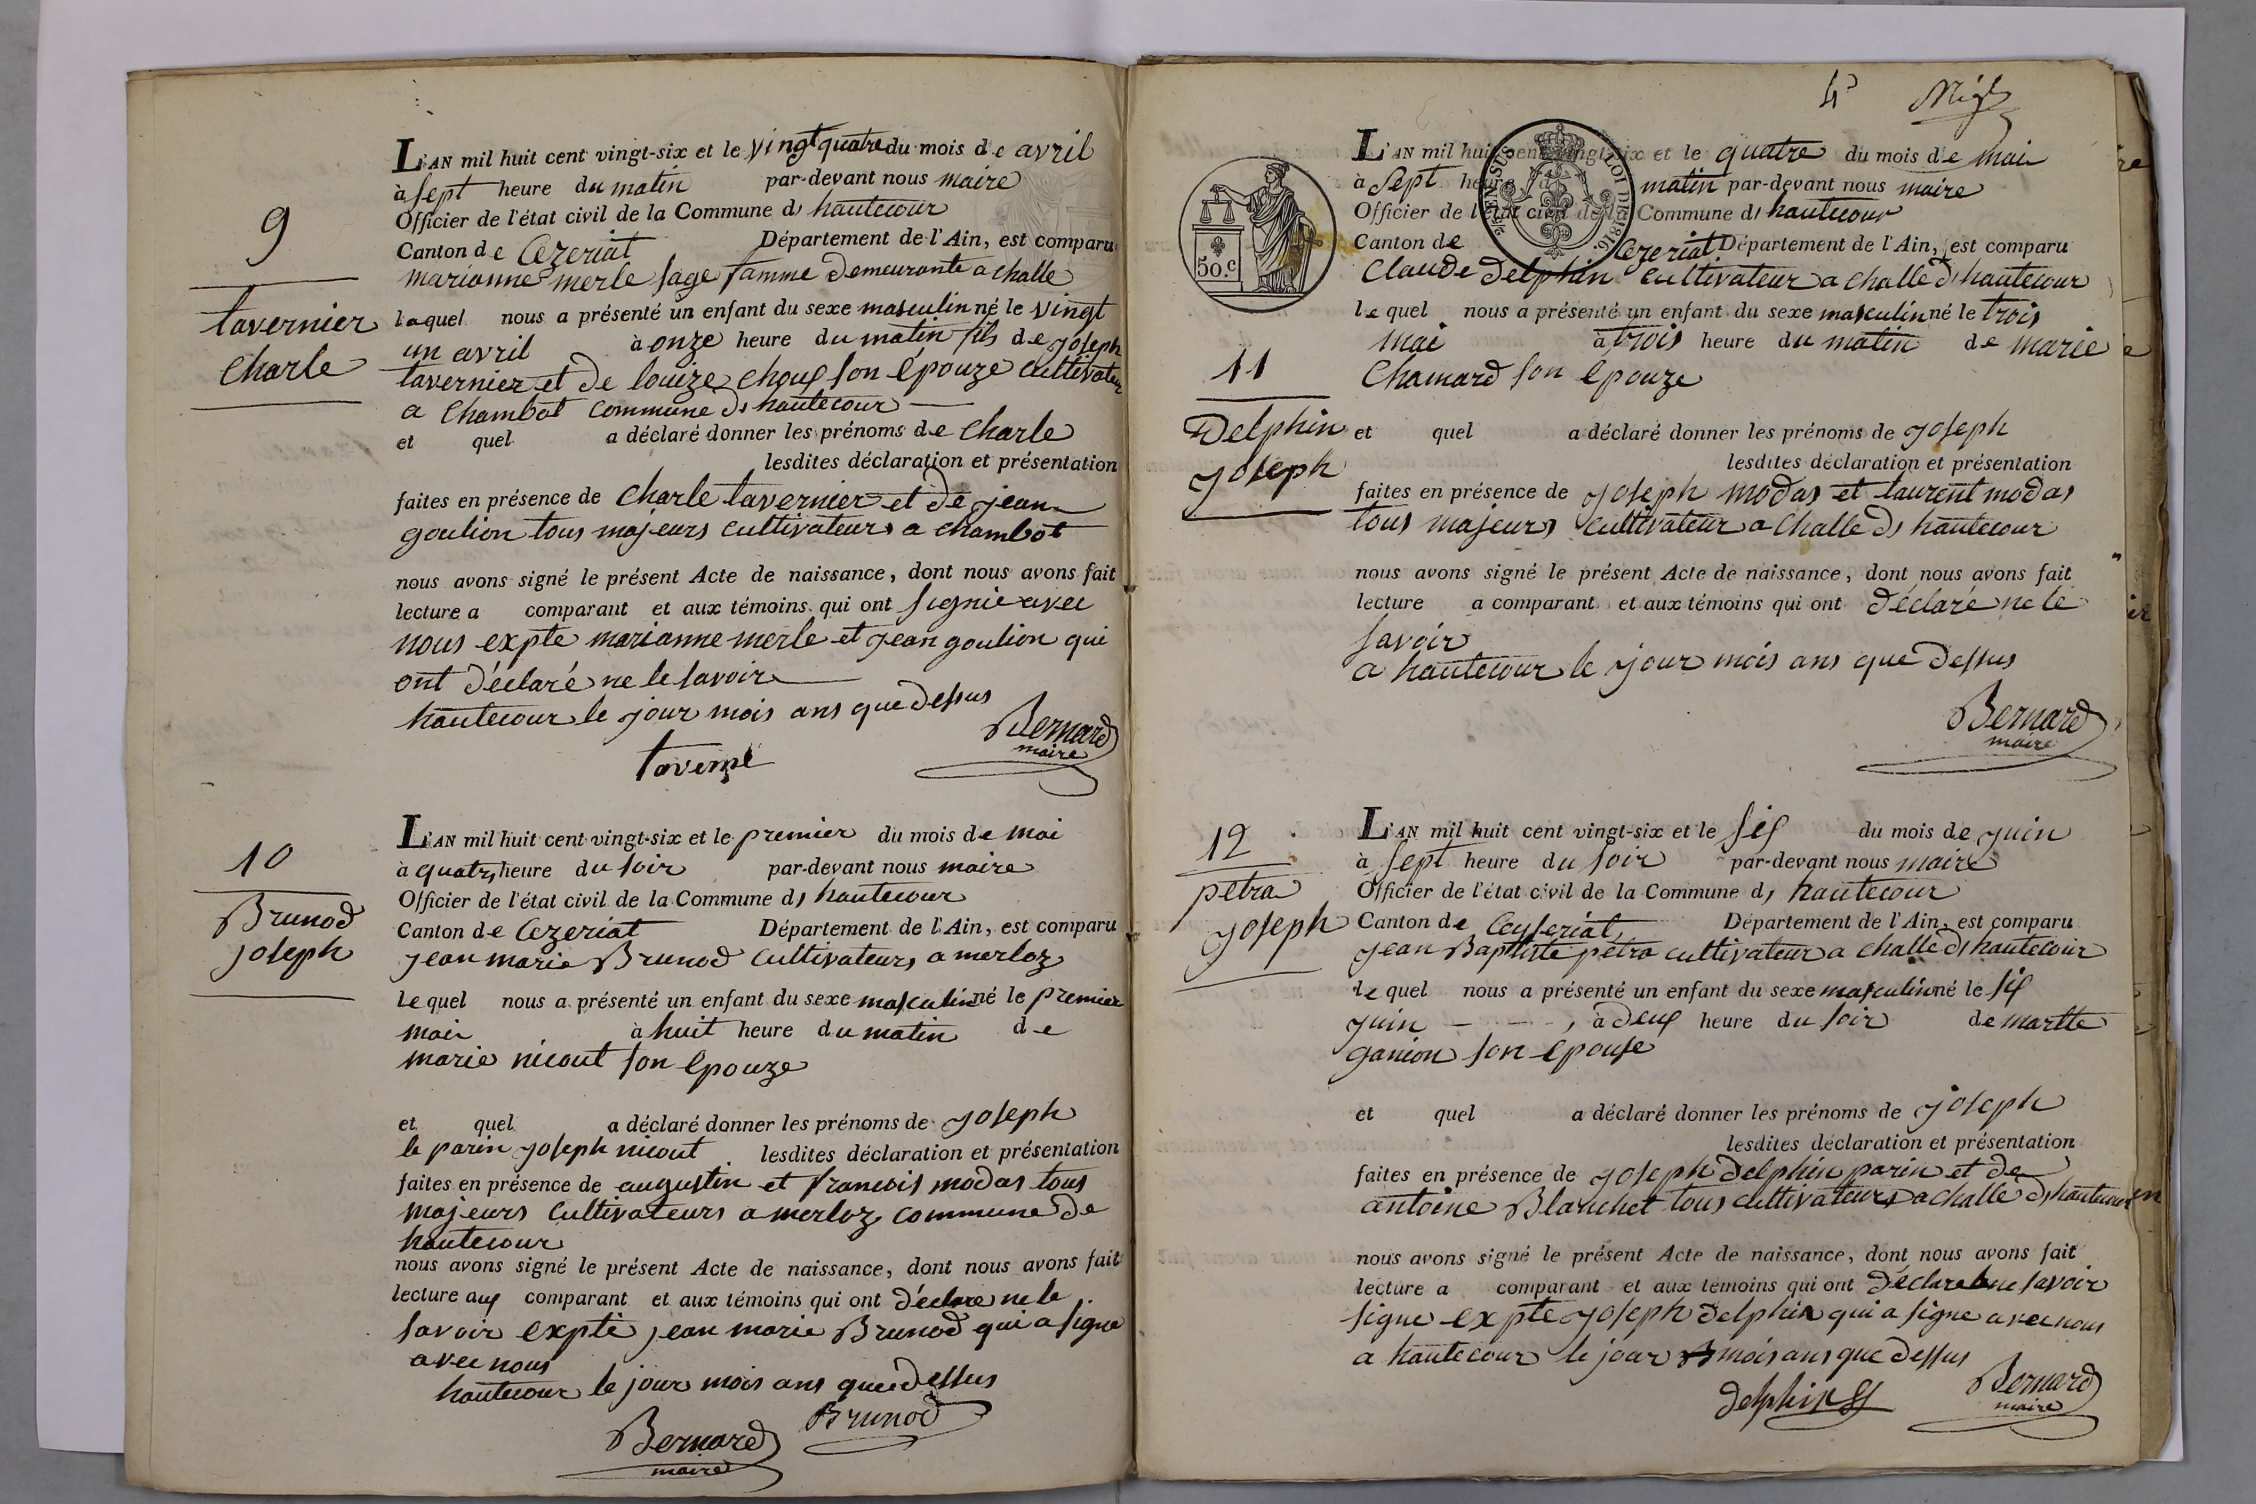 9
tavernier
Charle
L'AN mil huit cent vingt-six et le vingt quatre du mois de avril
à sept heure du matin par-devant nous maire
Officier de l'état civil de la Commune ds hautecour
Canton de Cezeriat Département de l'Ain, est comparu
marianne merle sage famme demeurante a challe
laquel nous a présenté un enfant du sexe masculin né le vingt
un avril à onze heure du matin fils de joseph
tavernier et de louize choux son épouze cultivateur
a Chambot commune ds hautecour
et quel a déclaré donner les prénoms de Charle
lesdites déclaration et présentation
faites en présence de Charle tavernier et de jean
goulion tous majeurs cultivateurs a chambot
nous avons signé le présent Acte de naissance, dont nous avons fait
lecture a comparant et aux témoins qui ont signié avec
nous expte marianne merle et jean goulion qui
ont déclaré ne le savoir
hautecour le jour mois ans que dessus
Bernard
maire
10
Brunod
joseph
L'AN mil huit cent vingt-six et le premier du mois de mai
à quatrs heure du soir par-devant nous maire
Officier de l'état civil de la Commune ds hautecour
Canton de Cezeriat Département de l'Ain, est comparu
jean marie Brunod cultivateurs a merloz
le quel nous a présenté un enfant du sexe masculin né le premier
mai à huit heure du matin de
marie nicout son epouze
et quel a déclaré donner les prénoms de joseph
le parin joseph nicout lesdites déclaration et présentation
faites en présence de augustin et francois modas tous
majeurs cultivateurs a merloz commune de
hautecour
nous avons signé le présent Acte de naissance, dont nous avons fait
lecture aux comparant et aux témoins qui ont déclare ne le
savoir expte jean marie Brunod qui a signe
avec nous
hautecour le jour mois ans que dessus
Brunod
Bernard
maire
50.C
LOI DE 1816.
11
Delphin
joseph
L'AN mil huit cent vingt-six et le quatre du mois de mai
à sept heure du matin par-devant nous maire
Officier de l'état civil de la Commune ds hautecour
Canton de Cezeriat Département de l'Ain, est comparu
Claude Delphin cultivateur a challe ds hautecour
le quel nous a présenté un enfant du sexe masculin né le trois
mai à trois heure du matin de marie
Chamard son epouze
et quel a déclaré donner les prénoms de joseph
lesdites déclaration et présentation
faites en présence de joseph modas et laurent modas
tous majeurs cultivateur a Challe ds hautecour
nous avons signé le présent Acte de naissance, dont nous avons fait
lecture a comparant et aux témoins qui ont déclaré ne le
savoir
a hautecour le jour mois ans que dessus
Bernard
maire
12
petra
joseph
L'AN mil huit cent vingt-six et le six du mois de juin
à sept heure du soir par-devant nous maire
Officier de l'état civil de la Commune ds hautecour
Canton de Ceyseriat Département de l'Ain, est comparu
jean Baptiste petra cultivateur a challe ds hautecour
le quel nous a présenté un enfant du sexe masculin né le six
juin à deux heure du soir de martte
ganion son epouse
et quel a déclaré donner les prénoms de joseph
lesdites déclaration et présentation
faites en présence de joseph delphin parin et de
antoine Blanchet tous cultivateurs a challe ds hautecour
nous avons signé le présent Acte de naissance, dont nous avons fait
lecture a comparant et aux témoins qui ont déclare ne savoir
signe expte joseph delphin qui a signe avec nous
a hautecour le jour mois ans que dessus
delphin
Bernard
maire